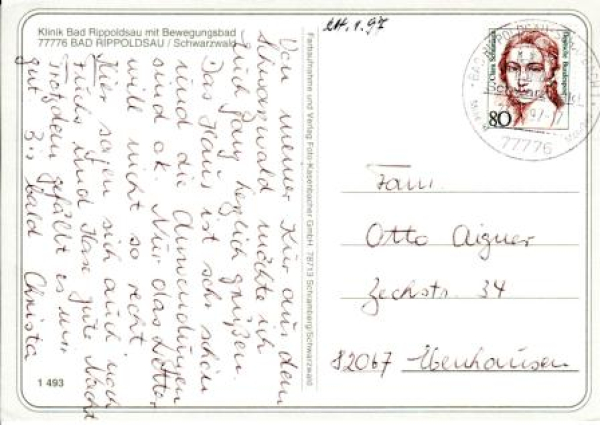 Klinik Bad Rippoldsau mit Bewegungsbad
77776 BAD RIPPOLDSAU / Schwarzwald
24.1.97
Von meiner Kur aus dem
Schwarzwald möchte ich
Euch ganz herzlich grüßen.
Das Haus ist sehr schön
und die Anwendungen
sind ok. Nur das Wetter
will nicht so recht.
Hier sagen sich auch noch
Fuchs und Hase gute Nacht
Trotzdem gefällt es mir
gut. Bis bald Christa
1 493
Farbaufnahme und Verlag Foto-Kasenbacher GmbH 78713 Schramberg/Schwarzwald
Clara Schumann
Deutsche Bundespost
80
BAD RIPPOLDSAU
Schwarzwald
97-17
77776
Fam.
Otto Aigner
Zechstr. 34
82067 Ebenhausen